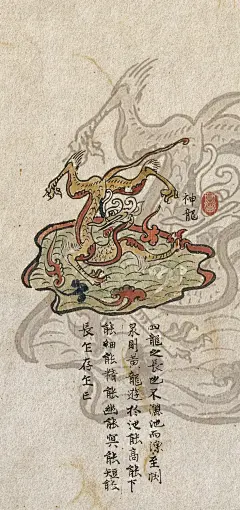 神龍
四龍之長也不漉池而漁至淵
泉則黄龍遊於池能高能下
能細能精能幽能冥能短能
長乍存乍亡